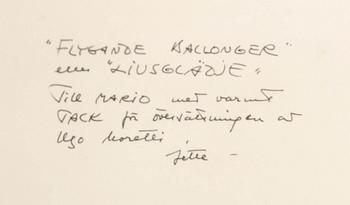 "FLYGANDE BALLONGER"
eller "LJUSGLÄDJE"
Till MARIO med varmt
TACK för översättningen av
Ugo Moretti,
Jette –